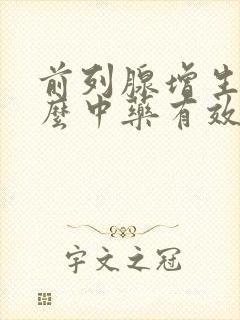 前列腺增生
麽中藥有效
宇文之冠